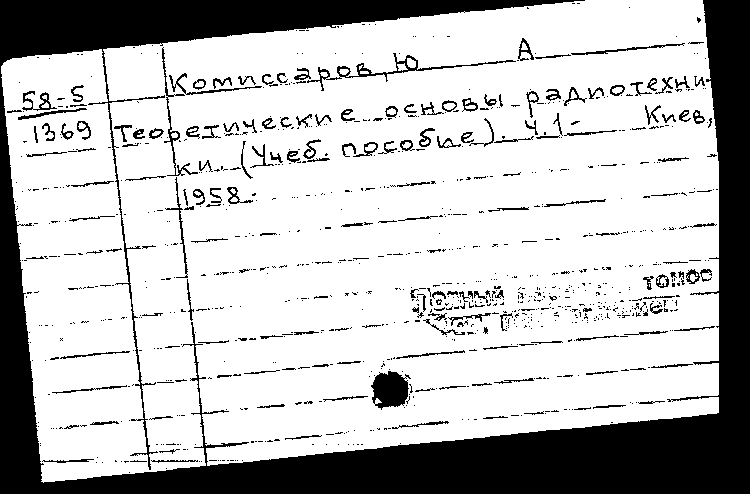 Комиссаров, Ю А
58-5
1369 Теоретические основы радиотехни-
ки. (Учеб. пособие). Ч.1- Киев,
1958-
Полный томов